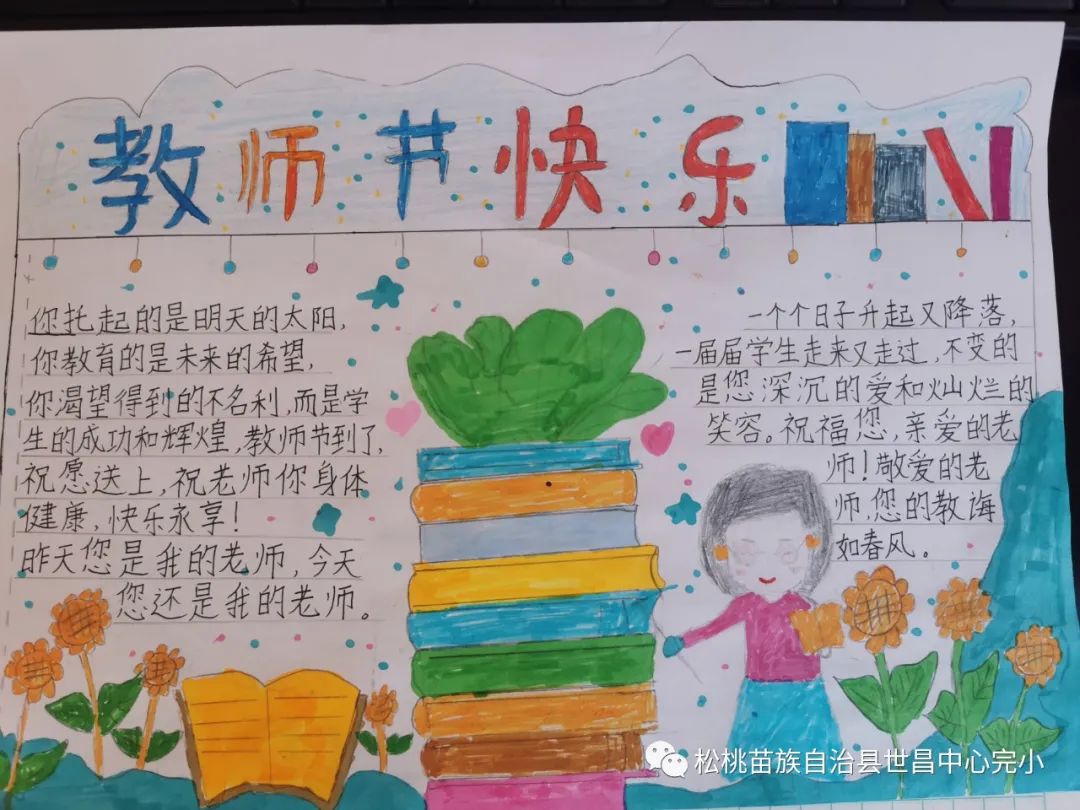 教师节快乐
你托起的是明天的太阳,
你教育的是未来的希望,
你渴望得到的不名利,而是学
生的成功和辉煌,教师节到了,
祝愿送上,祝老师你身体
健康,快乐永享!
昨天您是我的老师,今天
您还是我的老师。
一个个日子升起又降落,
一届届学生走来又走过,不变的
是您深沉的爱和灿烂的
笑容。祝福您,亲爱的老
师!敬爱的老
师,您的教诲
如春风。
松桃苗族自治县世昌中心完小